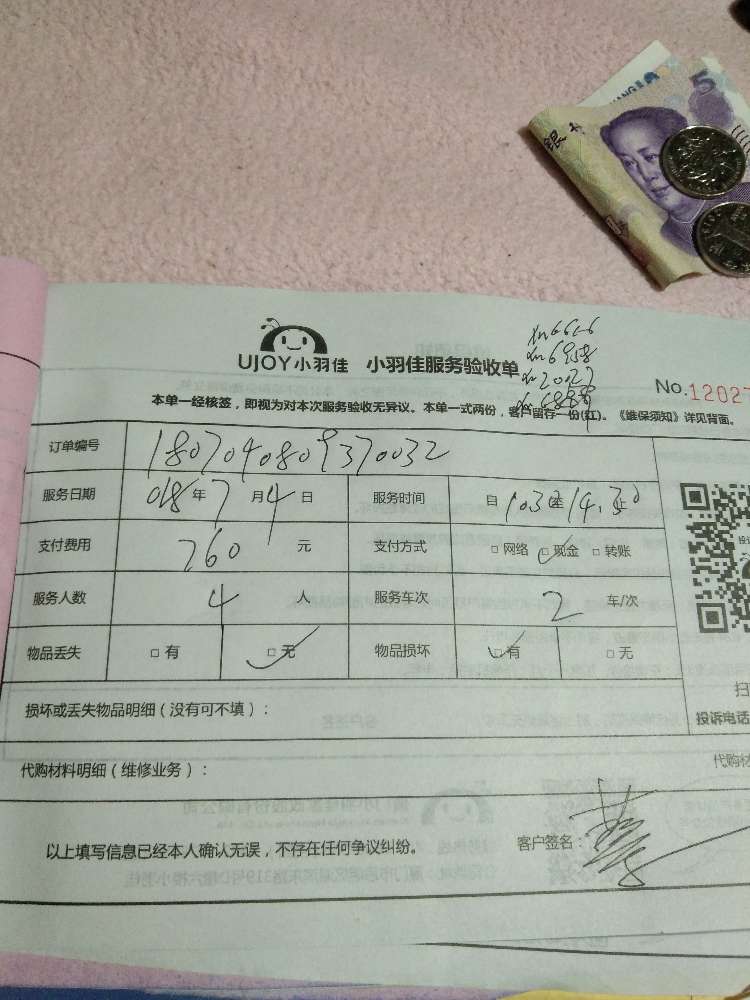 5
UJOY小羽佳 小羽佳服务验收单
No.12027
本单一经核签，即视为对本次服务验收无异议。本单一式两份，客户留存一份(红)。《维保须知》详见背面。
订单编号 1807040809370032
服务日期 018年7月4日 服务时间 自10.30至14.30止
支付费用 260元 支付方式 □网络 ☑现金 □转账
服务人数 4人 服务车次 2车/次
物品丢失 □有 ☑无 物品损坏 ☑有 □无
损坏或丢失物品明细（没有可不填）：
扫
投诉电话
代购材料明细（维修业务）：
代购材
以上填写信息已经本人确认无误，不存在任何争议纠纷。
客户签名：